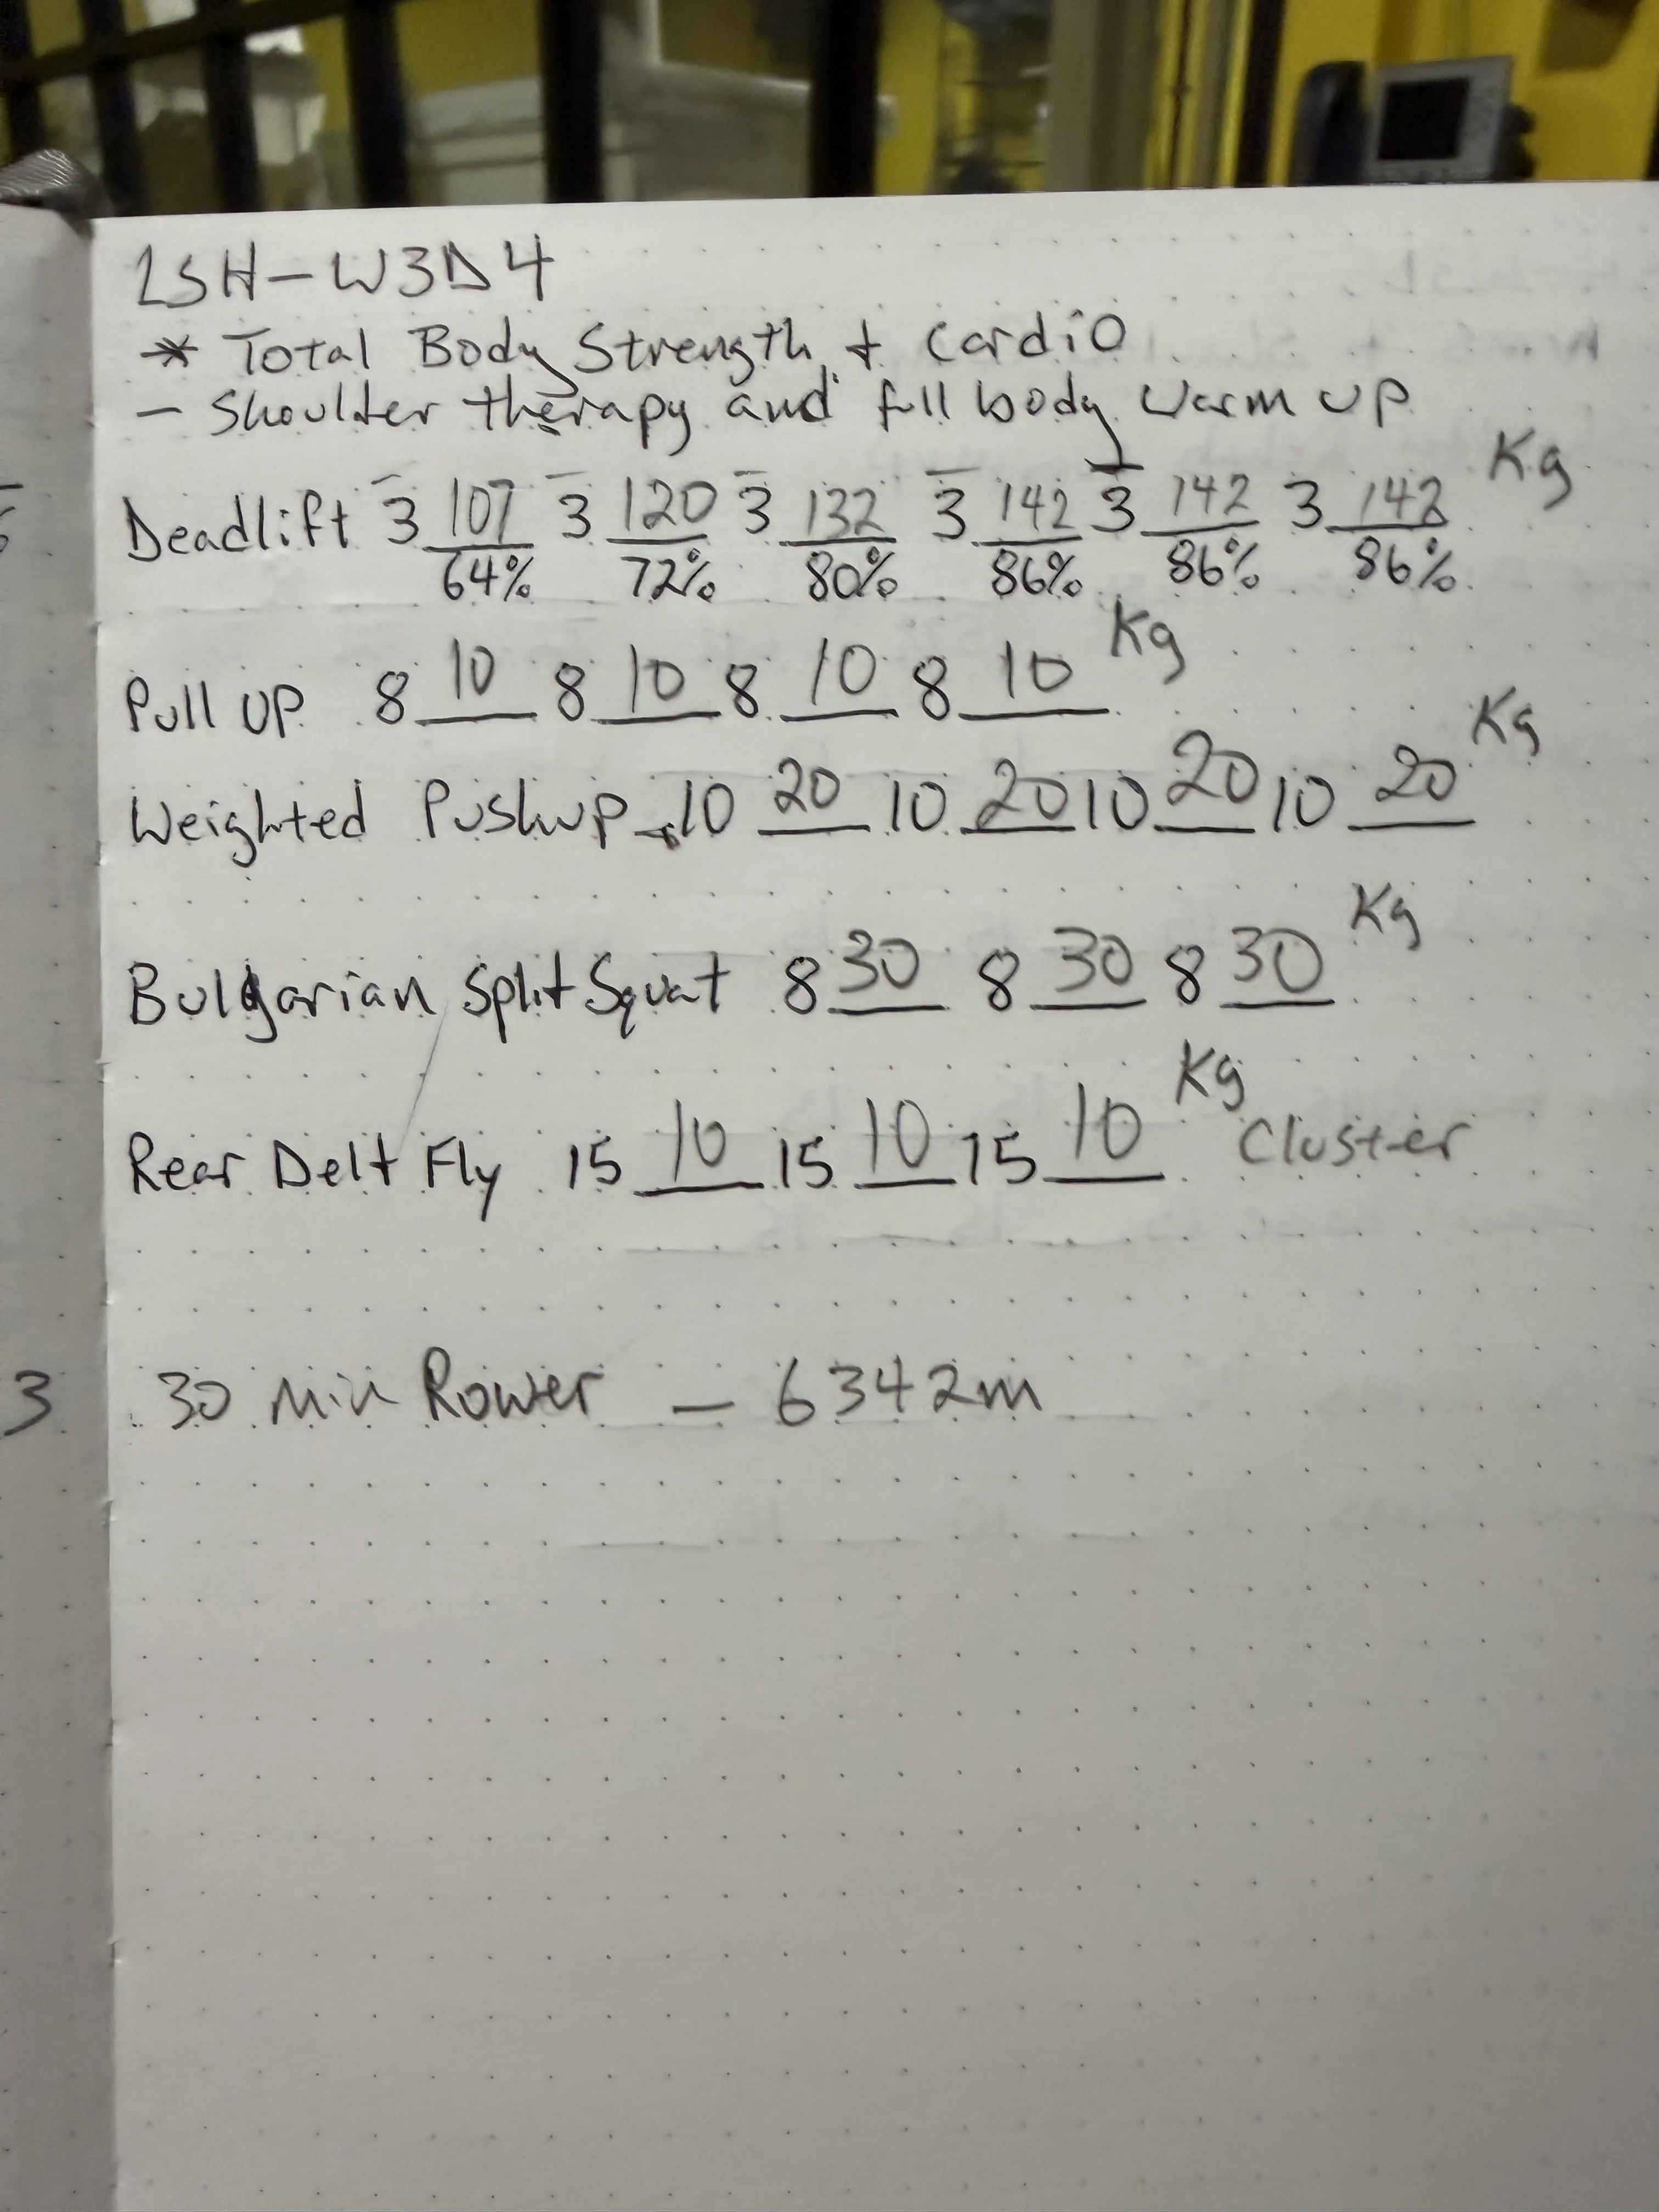 LSH-W3D4
* Total Body Strength + Cardio
- Shoulder therapy and full body warm up
Deadlift 3 107 3 120 3 132 3 142 3 142 3 142 Kg
64% 72% 80% 86% 86% 86%
Pull up 8 10 8 10 8 10 8 10 Kg
Weighted Pushup 10 20 10 20 10 20 10 20 Kg
Bulgarian Split Squat 8 30 8 30 8 30 Kg
Rear Delt Fly 15 10 15 10 15 10 Kg Cluster
3
30 min Rower - 6342m